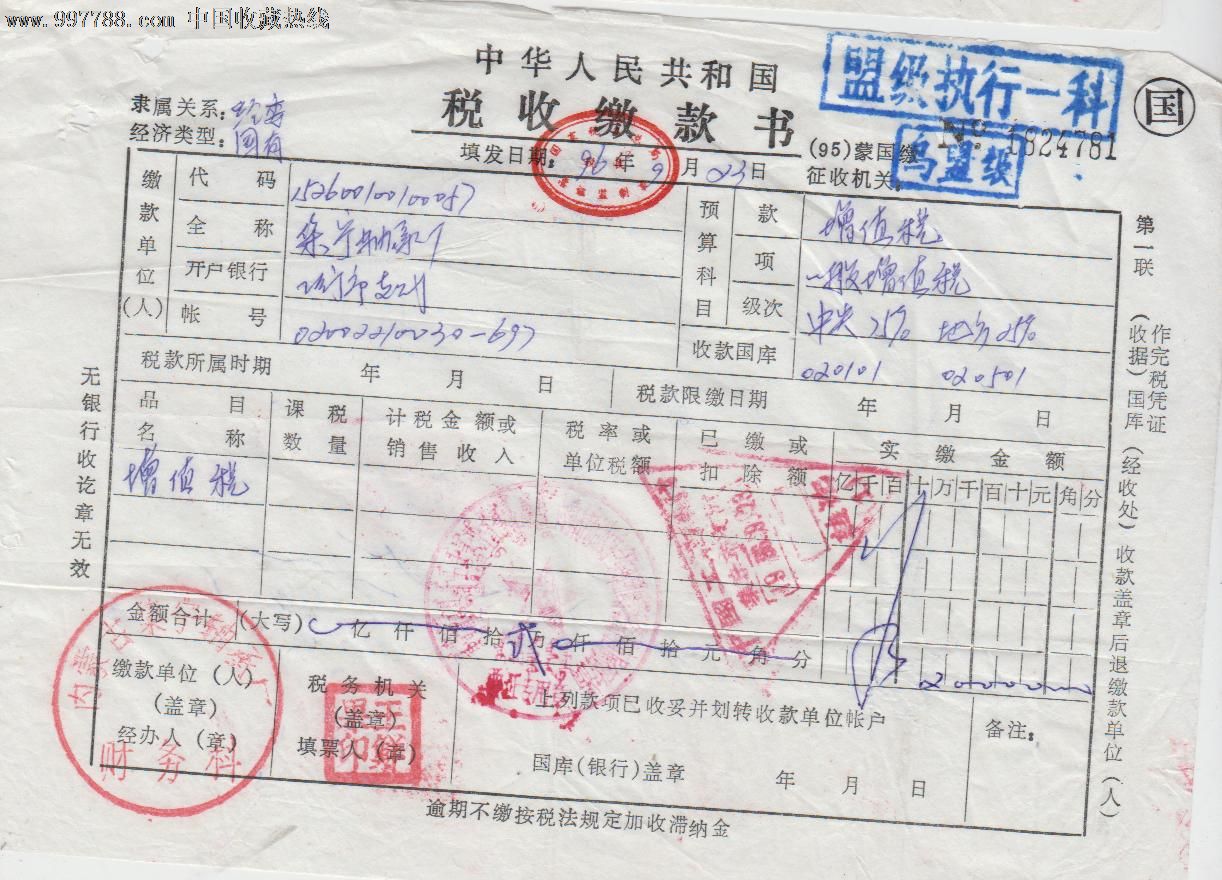 www.997788.com 中国收藏热线
中华人民共和国
税收缴款书
盟级执行一科
乌盟级
国
隶属关系：
经济类型：国有
填发日期：96年9月23日
(95)蒙国缴
№ 1824781
征收机关：
缴款单位(人)
代码
全称
开户银行
帐号 02002210030-697
预算科目
款 增值税
项 一般增值税
级次 中央75% 地方25%
收款国库 020101 020501
税款所属时期 年 月 日
税款限缴日期 年 月 日
品目名称
课税数量
计税金额或销售收入
税率或单位税额
已缴或扣除额
实缴金额
亿千百十万千百十元角分
增值税
金额合计 (大写) 亿仟佰拾贰万仟佰拾元角分
缴款单位(人)
(盖章)
经办人(章)
财务科
税务机关
(盖章)
填票人(章)
上列款项已收妥并划转收款单位帐户
国库(银行)盖章 年 月 日
备注：
逾期不缴按税法规定加收滞纳金
无银行收讫章无效
第一联
(收据)国库(经收处)收款盖章后退缴款单位(人)
作完税凭证